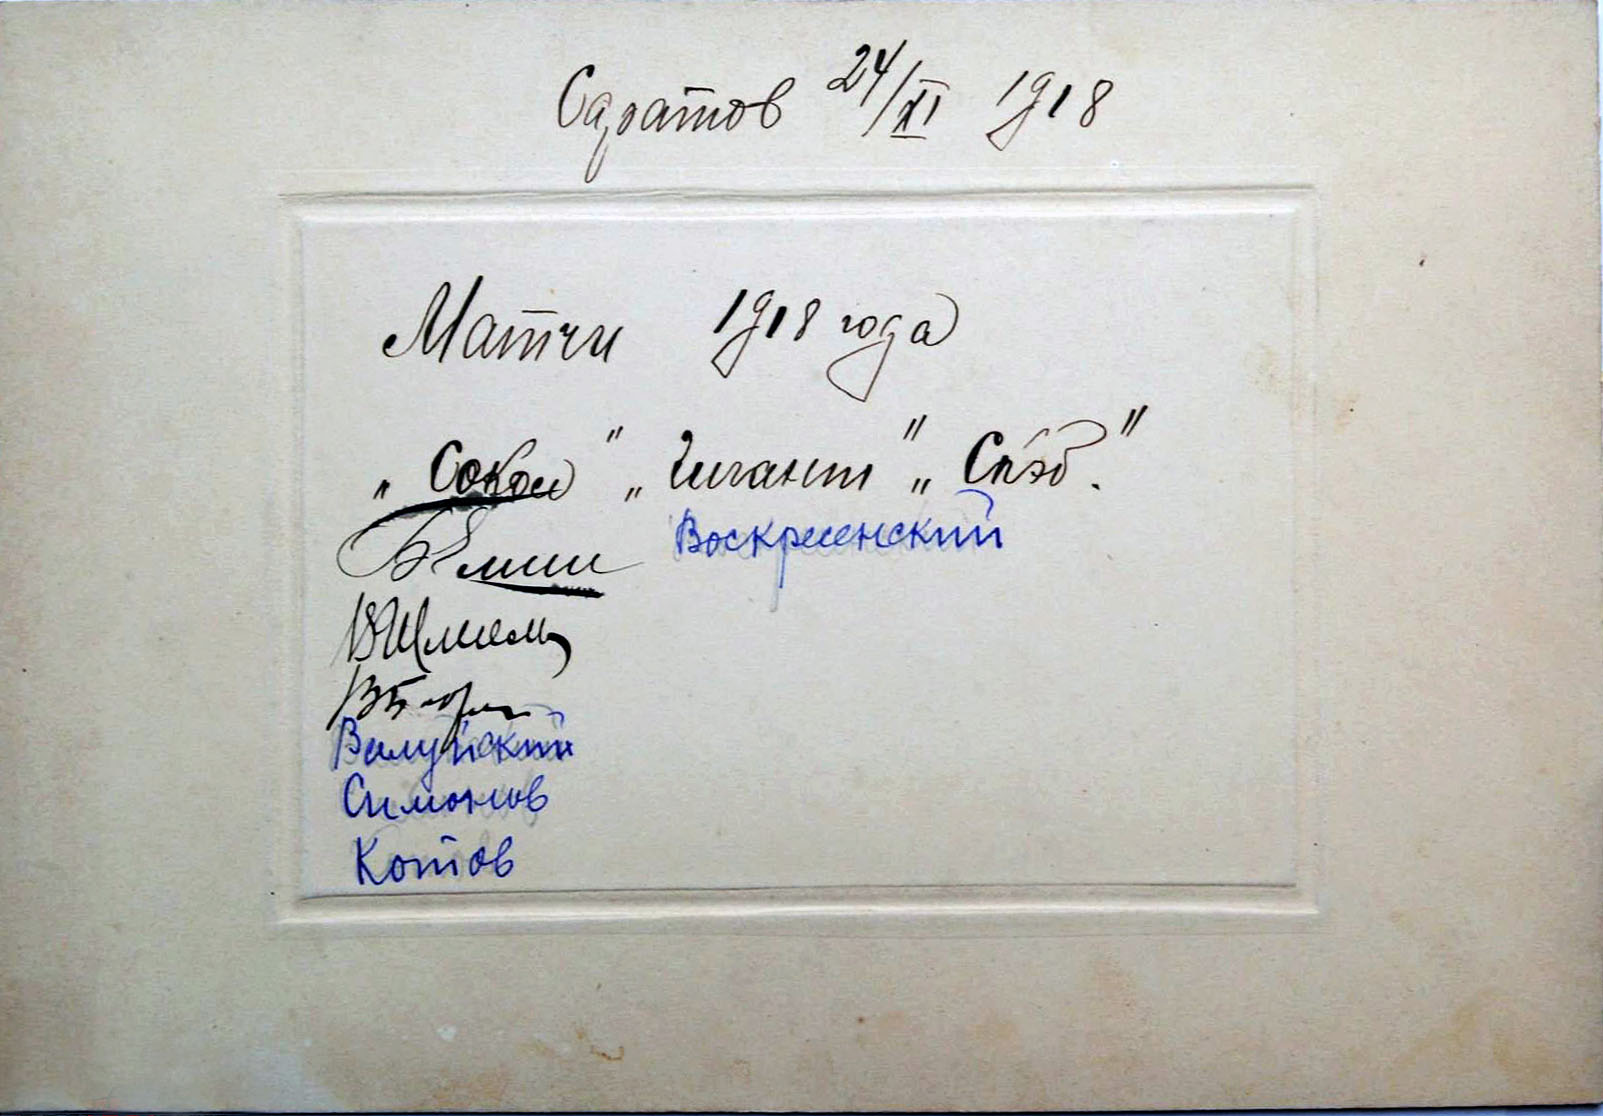 Саратов 24/XI 1918
Матчи 1918 года
„Сокол" „Гигант" „Спэб."
Воскресенский
Валуйский
Симонов
Котов